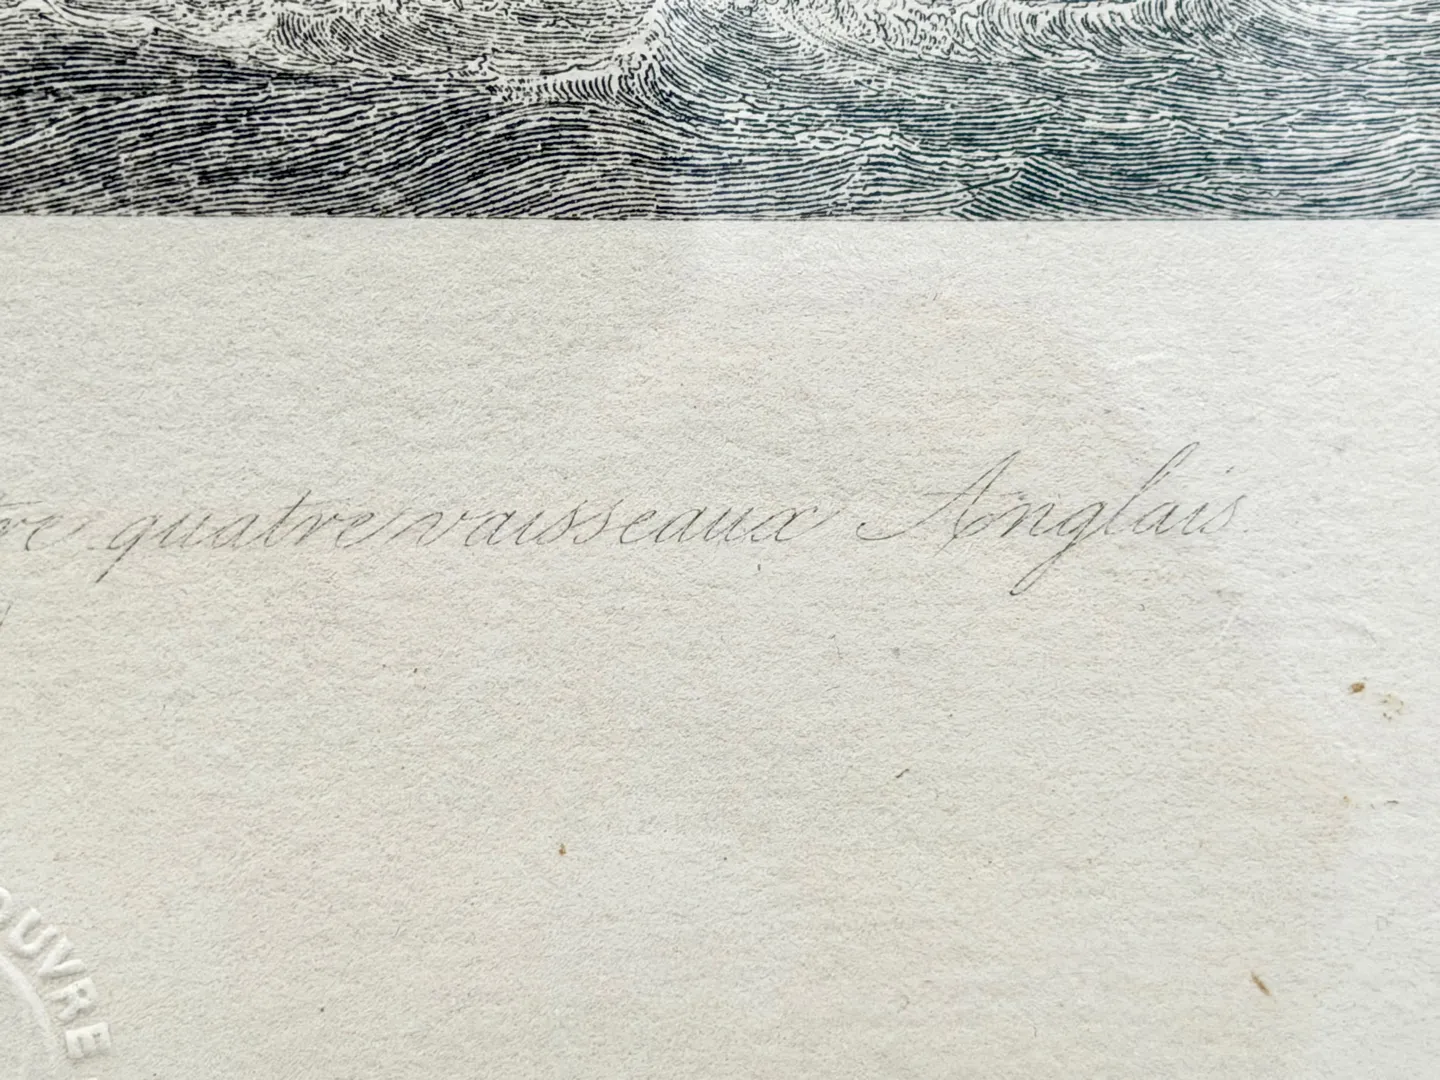 tre quatre vaisseaux Anglais.
OUVRE